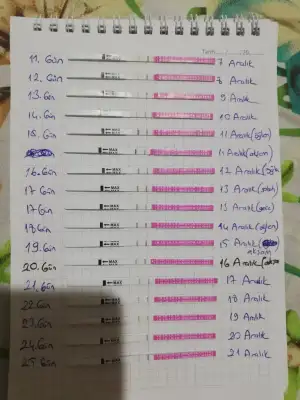 Tarih
11. Gün MAX 7 Aralık
12. Gün MAX 8 Aralık
13. Gün MAX 9 Aralık
14. Gün MAX 10 Aralık
15. Gün MAX 11 Aralık (öğlen)
MAX 11 Aralık (akşam)
16. Gün MAX 12 Aralık
17 Gün MAX 13 Aralık (sabah)
17 Gün MAX 13 Aralık (gece)
18 Gün MAX 14 Aralık (öğlen)
19. Gün MAX 15 Aralık
akşam
20. Gün MAX 16 Aralık (akşa
21. Gün MAX 17 Aralık
22. Gün MAX 18 Aralık
23. Gün MAX 19 Aralık
24. Gün MAX 20 Aralık
25. Gün MAX 21 Aralık